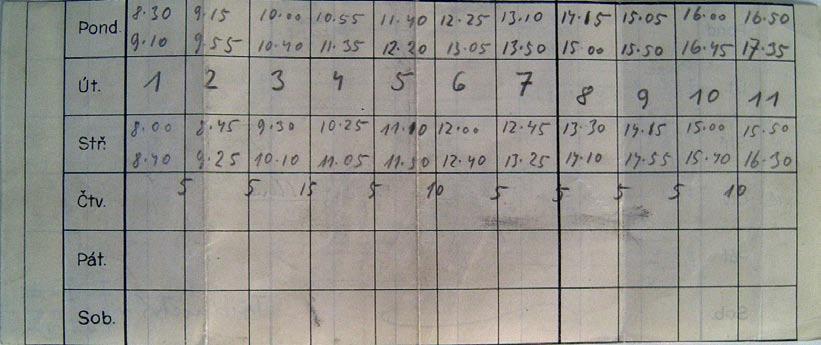 8.30 9.15 10.00 10.55 11.40 12.25 13.10 14.15 15.05 16.00 16.50
Pond.
9.10 9.55 10.40 11.35 12.20 13.05 13.50 15.00 15.50 16.45 17.35
Út. 1 2 3 4 5 6 7 8 9 10 11
8.00 8.45 9.30 10.25 11.10 12.00 12.45 13.30 14.15 15.00 15.50
Stř.
8.40 9.25 10.10 11.05 11.50 12.40 13.25 14.10 14.55 15.40 16.30
Čtv. 5 5 15 5 10 5 5 5 5 10
Pát.
Sob.